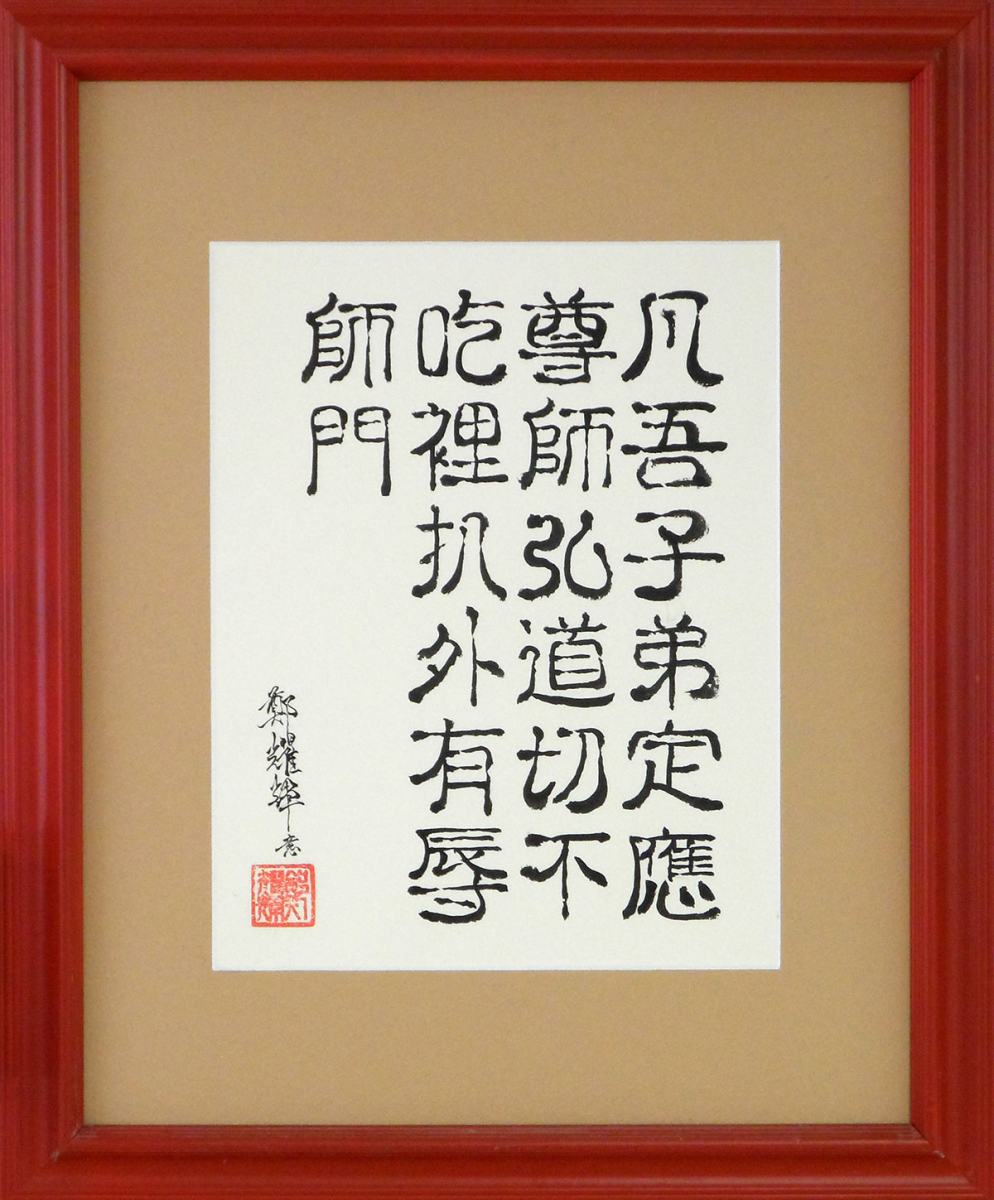 凡吾子弟定應
尊師弘道切不
吃裡扒外有辱
師門
鄭耀輝意